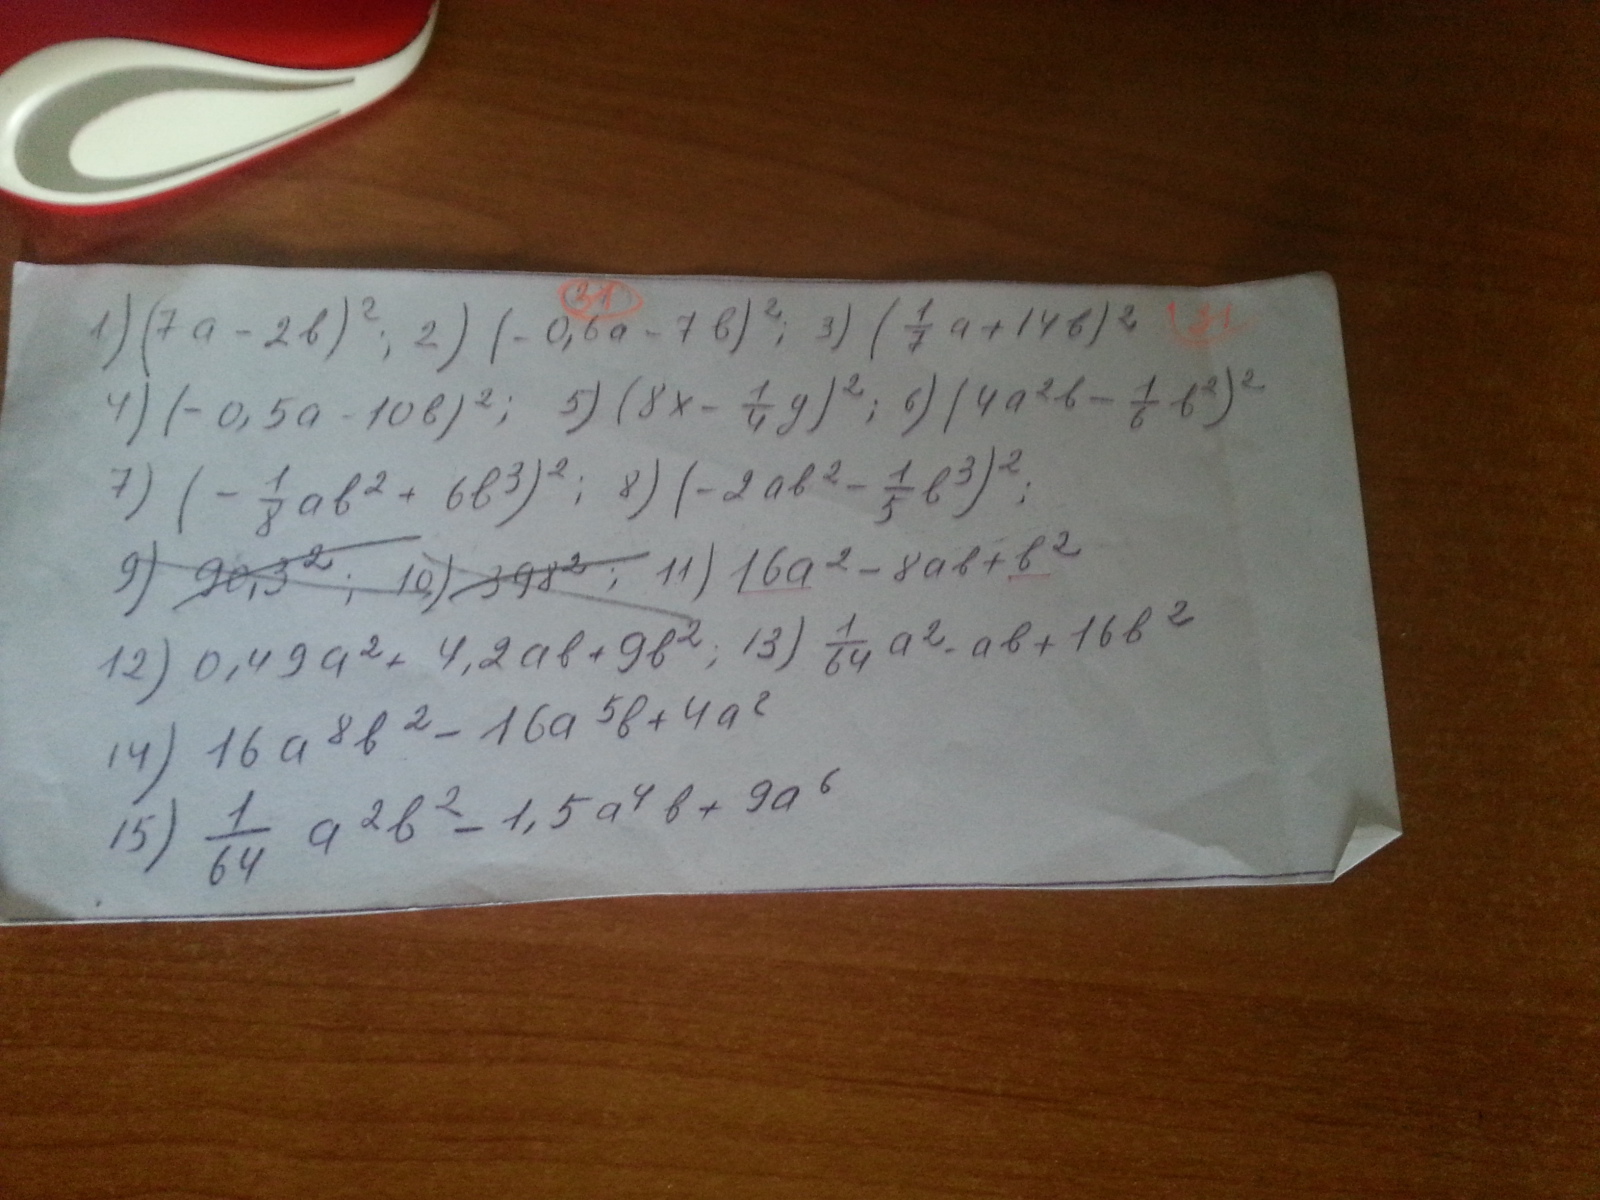 31
1) (7a - 2b)²; 2) (-0,6a - 7b)²; 3) (1/7 a + 14b)² 31
4) (-0,5a - 10b)²; 5) (8x - 1/4 y)²; 6) (4a²b - 1/6 b²)²
7) (-1/8 ab² + 6b³)²; 8) (-2ab² - 1/5 b³)²;
9) 90,3²; 10) 398²; 11) 16a² - 8ab + b²
12) 0,49a² + 4,2ab + 9b²; 13) 1/64 a² - ab + 16b²
14) 16a⁸b² - 16a⁵b + 4a²
15) 1/64 a²b² - 1,5a⁴b + 9a⁶